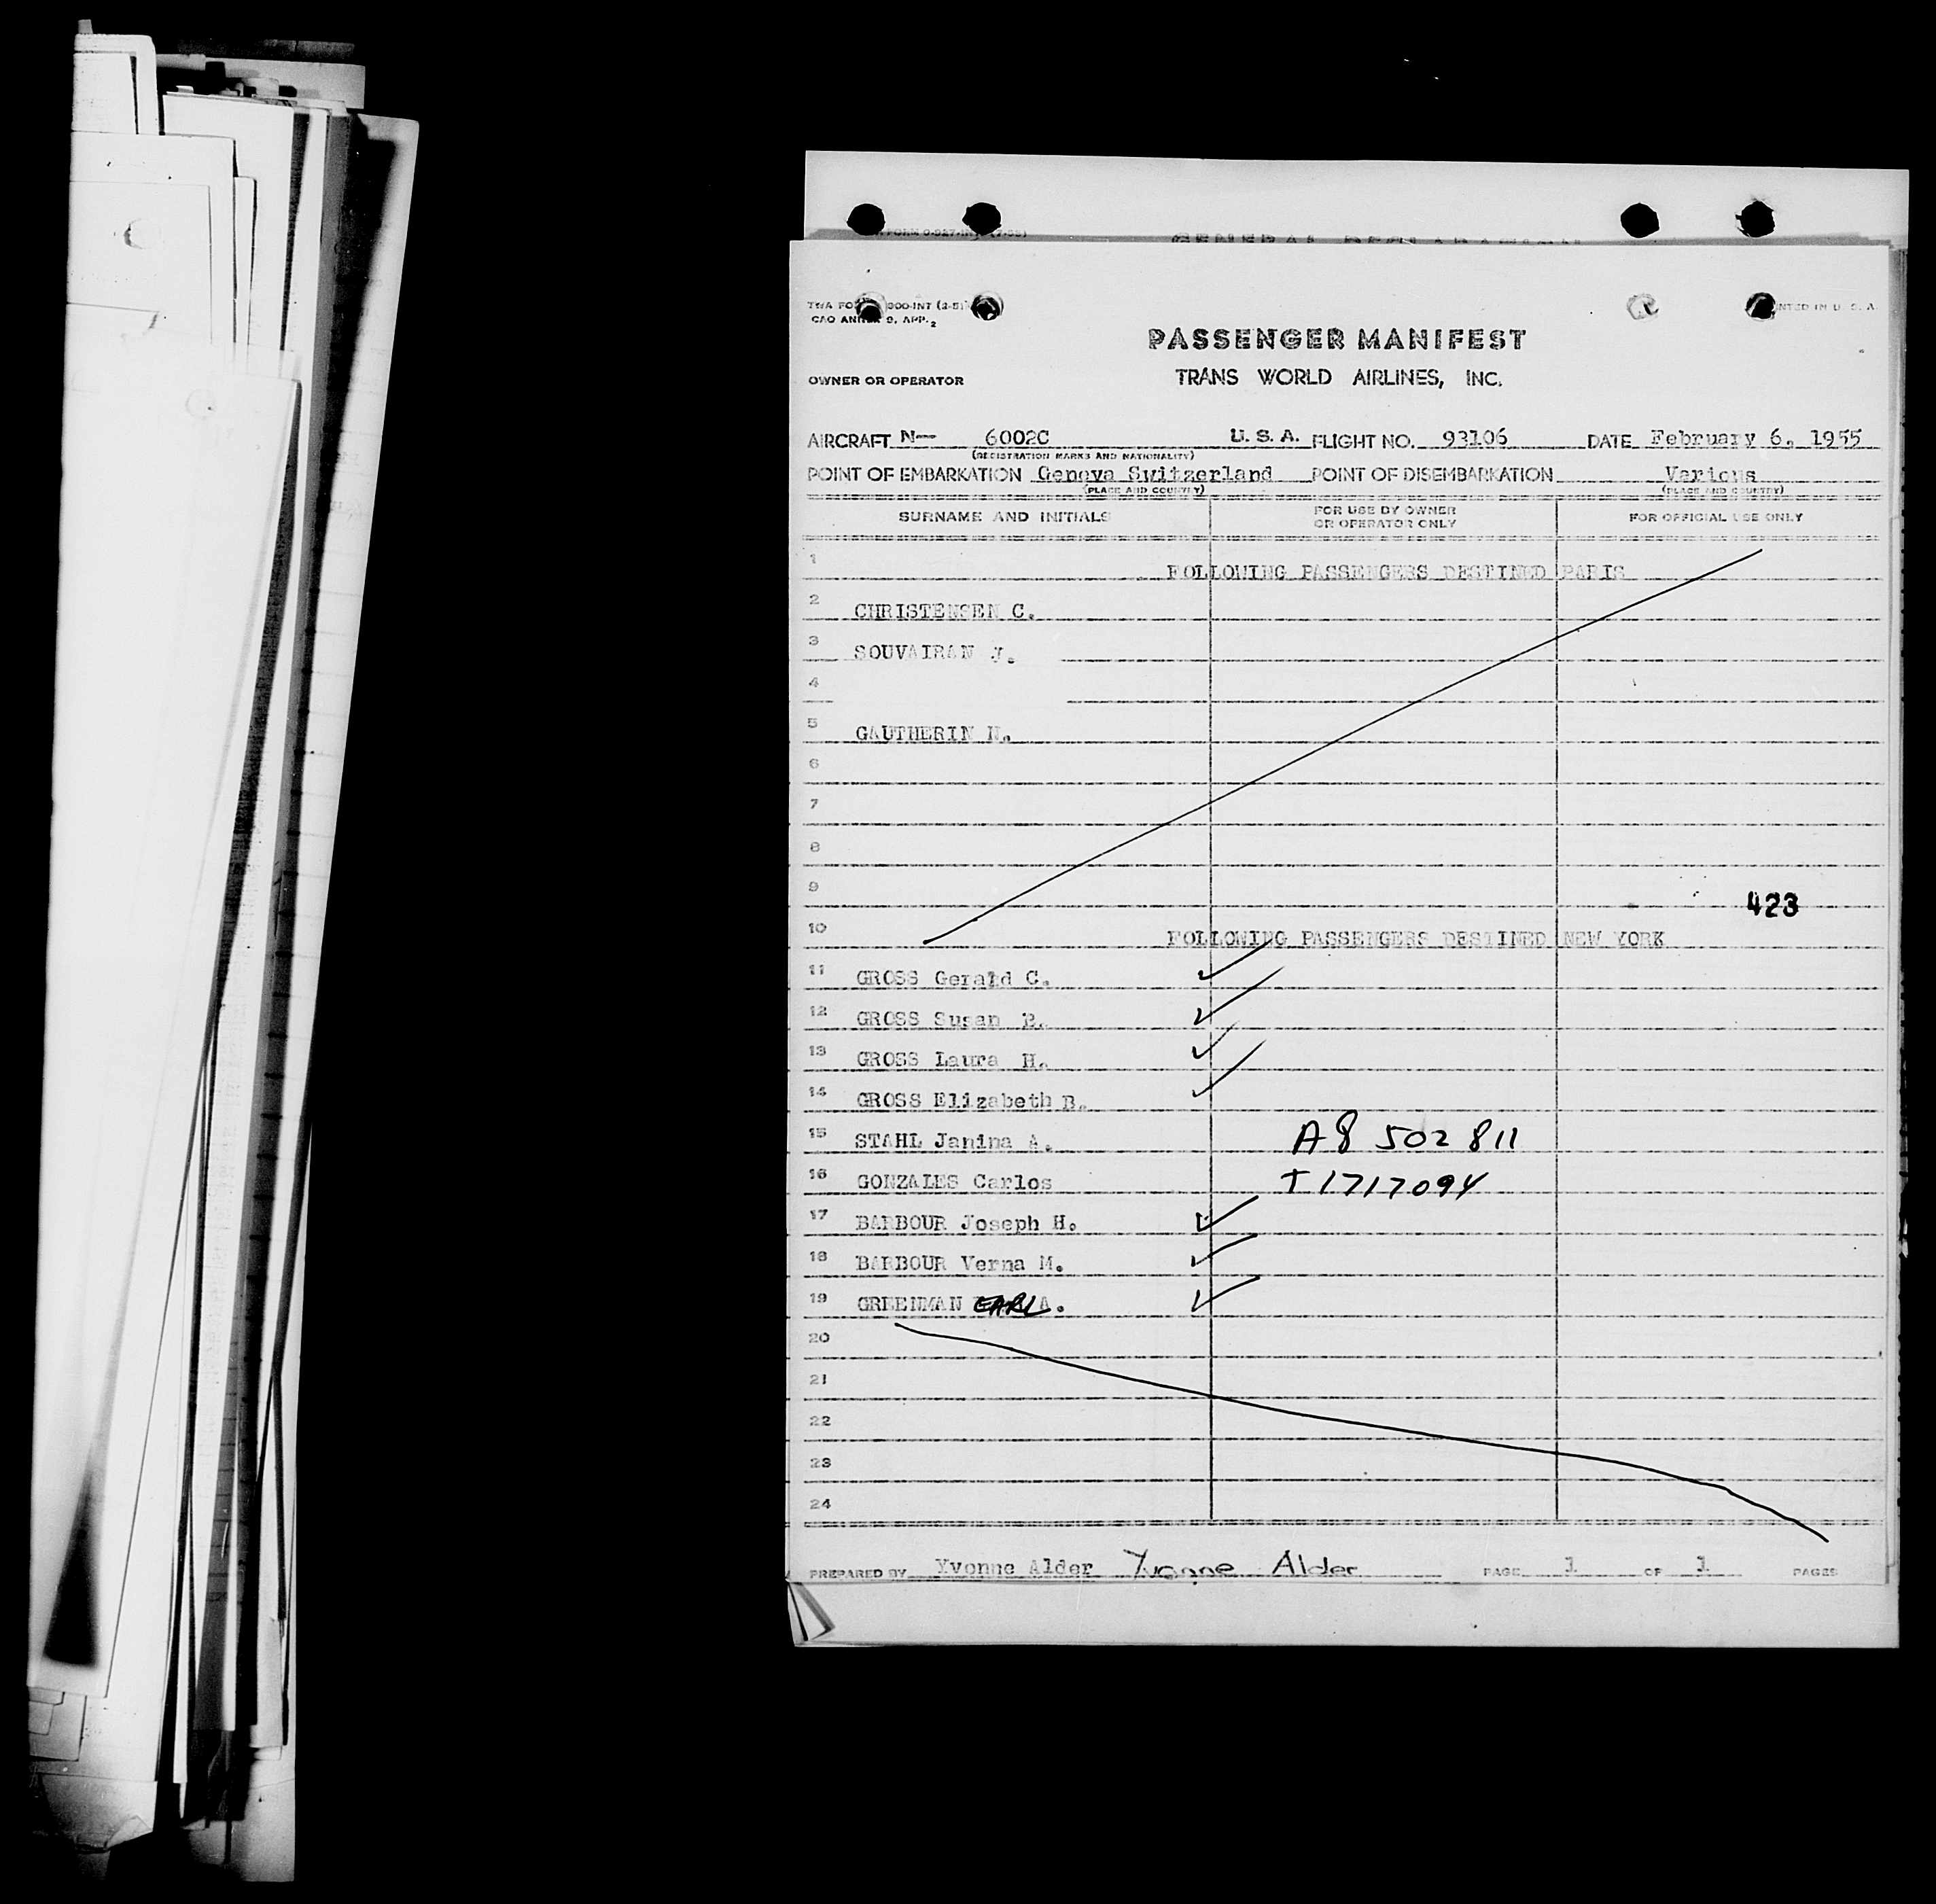 TWA FO 300-INT (3-51
CAO ANNEX 9, APP. 2
PASSENGER MANIFEST
OWNER OR OPERATOR TRANS WORLD AIRLINES, INC.
AIRCRAFT N— 6002C U. S. A. FLIGHT NO. 93106 DATE February 6, 1955
(REGISTRATION MARKS AND NATIONALITY)
POINT OF EMBARKATION Geneva Switzerland POINT OF DISEMBARKATION Various
(PLACE AND COUNTRY) (PLACE AND COUNTRY)
SURNAME AND INITIALS FOR USE BY OWNER OR OPERATOR ONLY FOR OFFICIAL USE ONLY
1 FOLLOWING PASSENGERS DESTINED PARIS
2 CHRISTENSEN C.
3 SOUVAIRAN J.
4
5 GAUTHERIN N.
6
7
8
9
423
10 FOLLOWING PASSENGERS DESTINED NEW YORK
11 GROSS Gerald C. ✓
12 GROSS Susan B. ✓
13 GROSS Laura H. ✓
14 GROSS Elizabeth B. ✓
15 STAHL Janina A. A8 502 811
16 GONZALES Carlos T 1717094
17 BARBOUR Joseph H. ✓
18 BARBOUR Verna M. ✓
19 GREENMAN EARL A. ✓
20
21
22
23
24
PREPARED BY Yvonne Alder Yvonne Alder PAGE 1 OF 1 PAGES